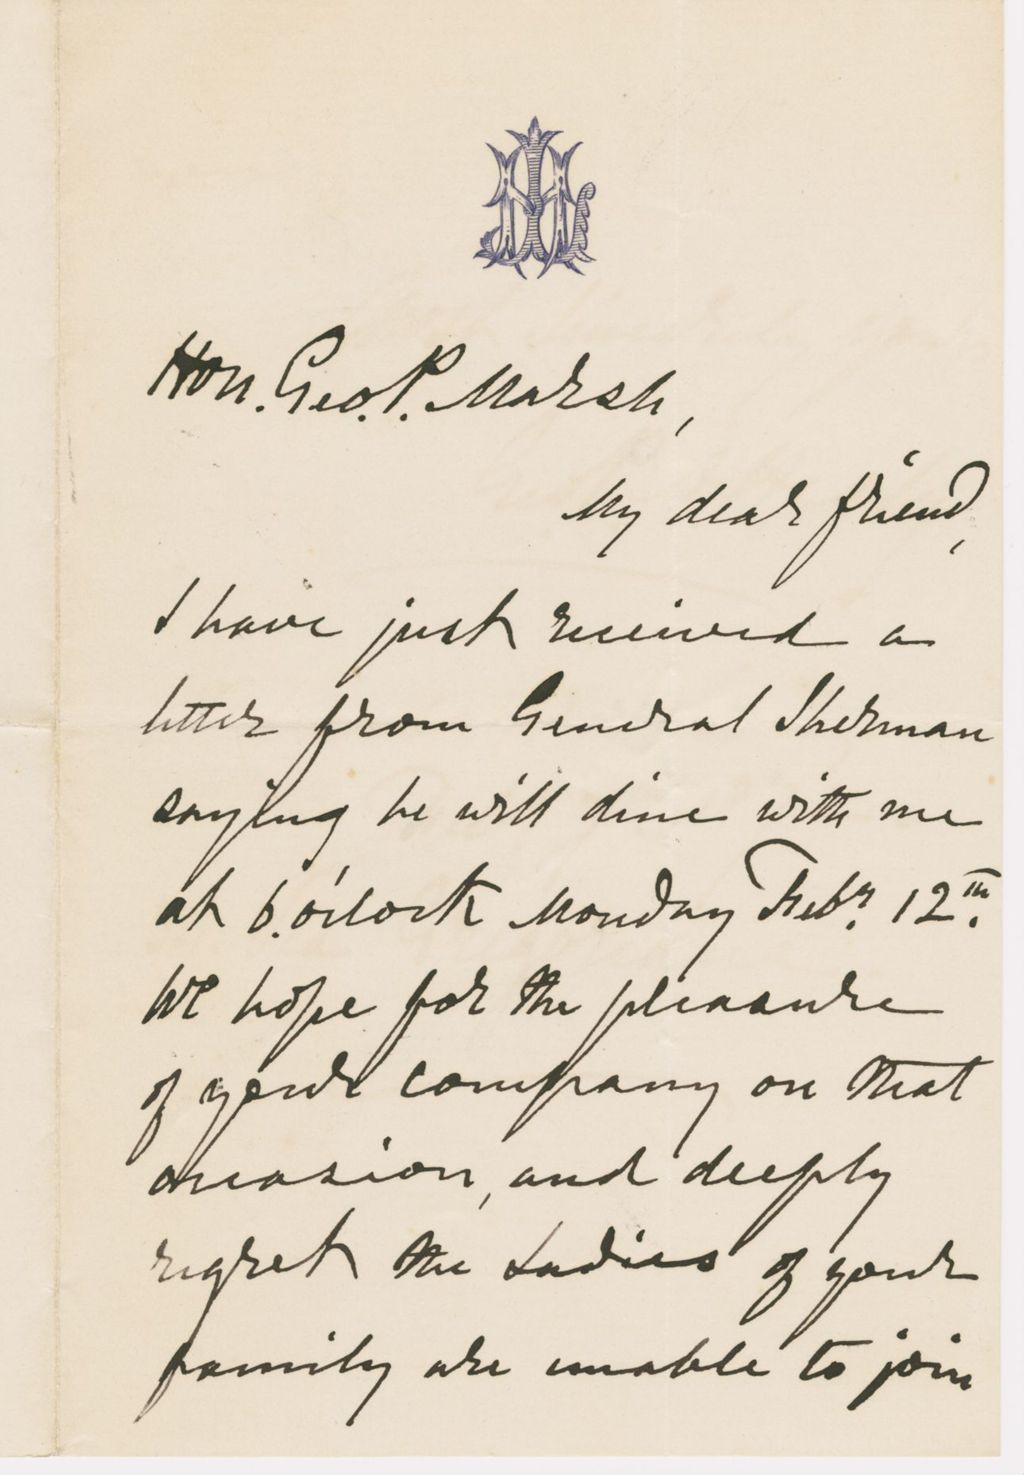 Hon. Geo. P. Marsh,
My dear friend,
I have just received a
letter from General Sherman
saying he will dine with me
at 6. o'clock Monday Feby. 12th.
We hope for the pleasure
of your company on that
occasion, and deeply
regret the Ladies of your
family are unable to join